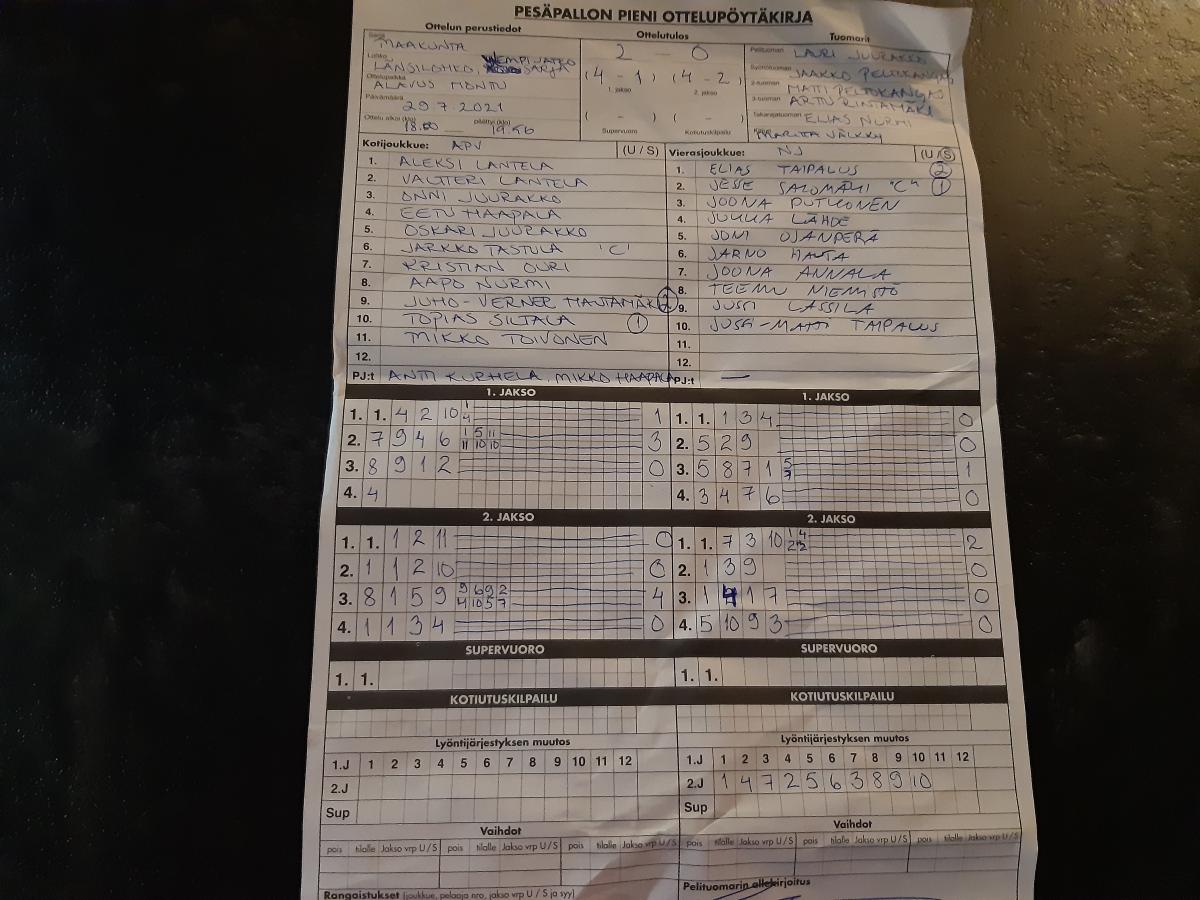 PESÄPALLON PIENI OTTELUPÖYTÄKIRJA
Ottelun perustiedot
Ottelutulos
Tuomarit
Sarja MAAKUNTA
Lohko LÄNSILOHKO, JATKOSARJA
Ottelupaikka ALAVUS MONTU
Päivämäärä 29.7.2021
Ottelu alkoi (klo) 18.00 päättyi (klo) 19.56
2 - 0
(4 - 1) (4 - 2)
1. jakso 2. jakso
( - ) ( - )
Supervuoro Kotiutuskilpailu
Pelituomari LAURI JUURAKKO
Syöttötuomari JAAKKO PELTOKANGAS
2-tuomari MATTI PELTOKANGAS
3-tuomari ARTU RINTAMÄKI
Takarajatuomari ELIAS NURMI
Kirjuri MARITTA VÄLKKY
Kotijoukkue: APV (U/S)
1. ALEKSI LANTELA
2. VALTTERI LANTELA
3. ONNI JUURAKKO
4. EETU HAAPALA
5. OSKARI JUURAKKO
6. JARKKO TASTULA "C"
7. KRISTIAN OURI
8. AAPO NURMI
9. JUHO-VERNER HAUTAMÄKI 2
10. TOPIAS SILTALA 1
11. MIKKO TOIVONEN
12.
PJ:t ANTTI KURHELA, MIKKO HAAPALA
Vierasjoukkue: NJ (U/S)
1. ELIAS TAIPALUS 2
2. JESSE SALOMÄKI "C" 1
3. JOONA PUTKONEN
4. JUKKA LÄHDE
5. JONI OJANPERÄ
6. JARNO HAUTA
7. JOONA ANNALA
8. TEEMU NIEMISTÖ
9. JUSSI LASSILA
10. JUSSI-MATTI TAIPALUS
11.
12.
PJ:t —
1. JAKSO
1. 1. 4 2 10 1 4 1
2. 7 9 4 6 1 5 11 11 10 10 3
3. 8 9 1 2 0
4. 4
1. JAKSO
1. 1. 1 3 4 0
2. 5 2 9 0
3. 5 8 7 1 5 7 1
4. 3 4 7 6 0
2. JAKSO
1. 1. 1 2 11 0
2. 1 1 2 10 0
3. 8 1 5 9 9 6 9 2 4 10 5 7 4
4. 1 1 3 4 0
2. JAKSO
1. 1. 7 3 10 1 4 2 2 2
2. 1 3 9 0
3. 1 4 1 7 0
4. 5 10 9 3 0
SUPERVUORO
1. 1.
SUPERVUORO
1. 1.
KOTIUTUSKILPAILU
KOTIUTUSKILPAILU
Lyöntijärjestyksen muutos
1.J 1 2 3 4 5 6 7 8 9 10 11 12
2.J
Sup
Lyöntijärjestyksen muutos
1.J 1 2 3 4 5 6 7 8 9 10 11 12
2.J 1 4 7 2 5 6 3 8 9 10
Sup
Vaihdot
pois tilalle Jakso vrp U/S pois tilalle Jakso vrp U/S pois tilalle Jakso vrp U/S
Vaihdot
pois tilalle Jakso vrp U/S pois tilalle Jakso vrp U/S pois tilalle Jakso vrp U/S
Rangaistukset (joukkue, pelaaja nro, jakso vrp U/S ja syy)
Pelituomarin allekirjoitus